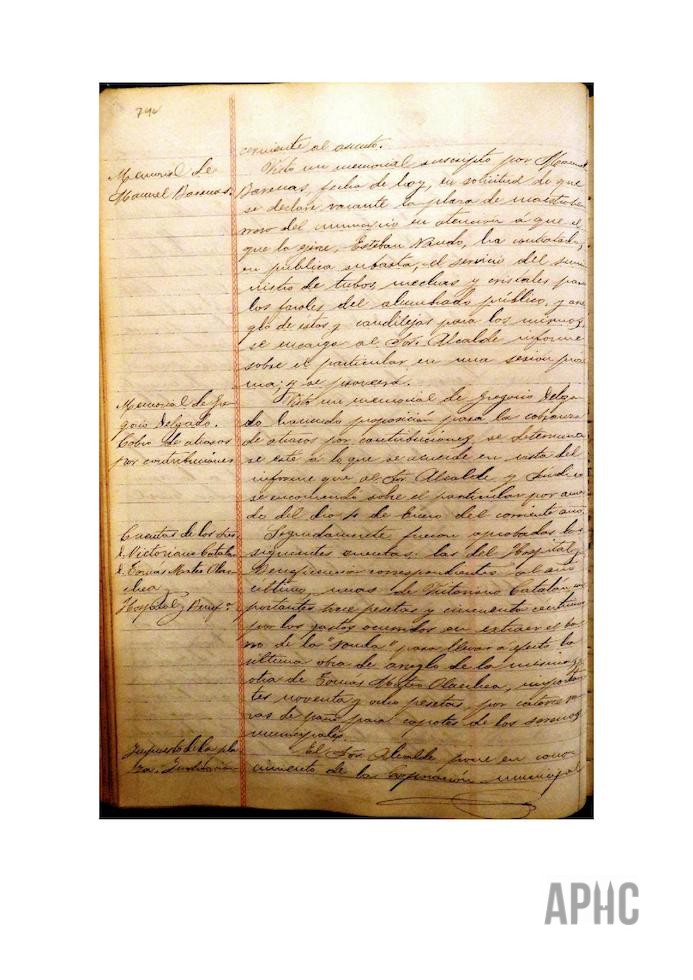 cerniente al asunto.
Memorial de
Manuel Barenas.
Visto un memorial suscripto por Manuel
Barenas, fecha de hoy, en solicitud de que
se declare vacante la plaza de maestro
del municipio en atención á que el
que la ejerce, Esteban, ha contratado,
en pública subasta, el servicio del sumi
nistro de tubos, mechas y cristales para
los faroles del alumbrado público, y arre
glo de estos y candilejas para los mismos,
se encarga al Sor. Alcalde informe
sobre el particular en una sesión próxi
ma; y se proveerá.
Memorial de Gre
gorio Delgado.
Cobro de atrasos
por contribuciones
Visto un memorial de Gregorio Delga
do haciendo proposición para la cobranza
de atrasos por contribuciones, se determina
se esté a lo que se acuerde en vista del
informe que al Sor. Alcalde y Síndico
se encomendó sobre el particular por acuer
do del día 4 de Enero del corriente año.
Cuentas de los Sres
D. Victoriano Catalán
D. Tomás Mateo Olan
chea y
Hospital y Benefa.
Seguidamente fueron aprobadas las
siguientes cuentas: las del Hospital y
Beneficencia correspondientes al año
último, unas de Victoriano Catalán im
portantes trece pesetas y cincuenta céntimos
por los gastos ocurridos en extraer el ba
rro de la para llevar a efecto la
última obra de arreglo de la misma; y
otra de Tomás Mateo Olanchea, importan
tes noventa y ocho pesetas, por catorce va
ras de paño para capotes de los serenos
municipales.
Impuesto de la pla
za.
El Sor. Alcalde pone en cono
cimiento de la Corporación municipal
APHC